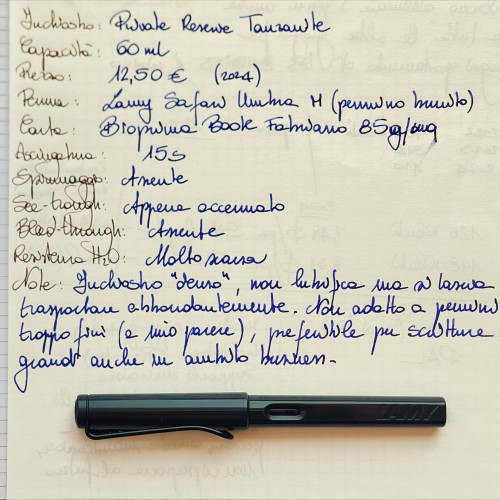 Inchiostro: Private Reserve Tanzanite
Capacità: 60 ml
Prezzo: 12,50 € (2024)
Penna: Lamy Safari Umbra M (pennino brunito)
Carta: Bioprima Book Fabriano 85g/mq
Asciugatura: 15s
Spiumaggio: Assente
See-trough: Appena accennato
Bleed-through: Assente
Resistenza H2O: Molto scarsa
Note: Inchiostro "denso", non lubrifica ma si lascia
trasportare abbondantemente. Non adatto a pennini
troppo fini (a mio parere), preferibile per scritture
grandi anche in ambito business.
LAMY